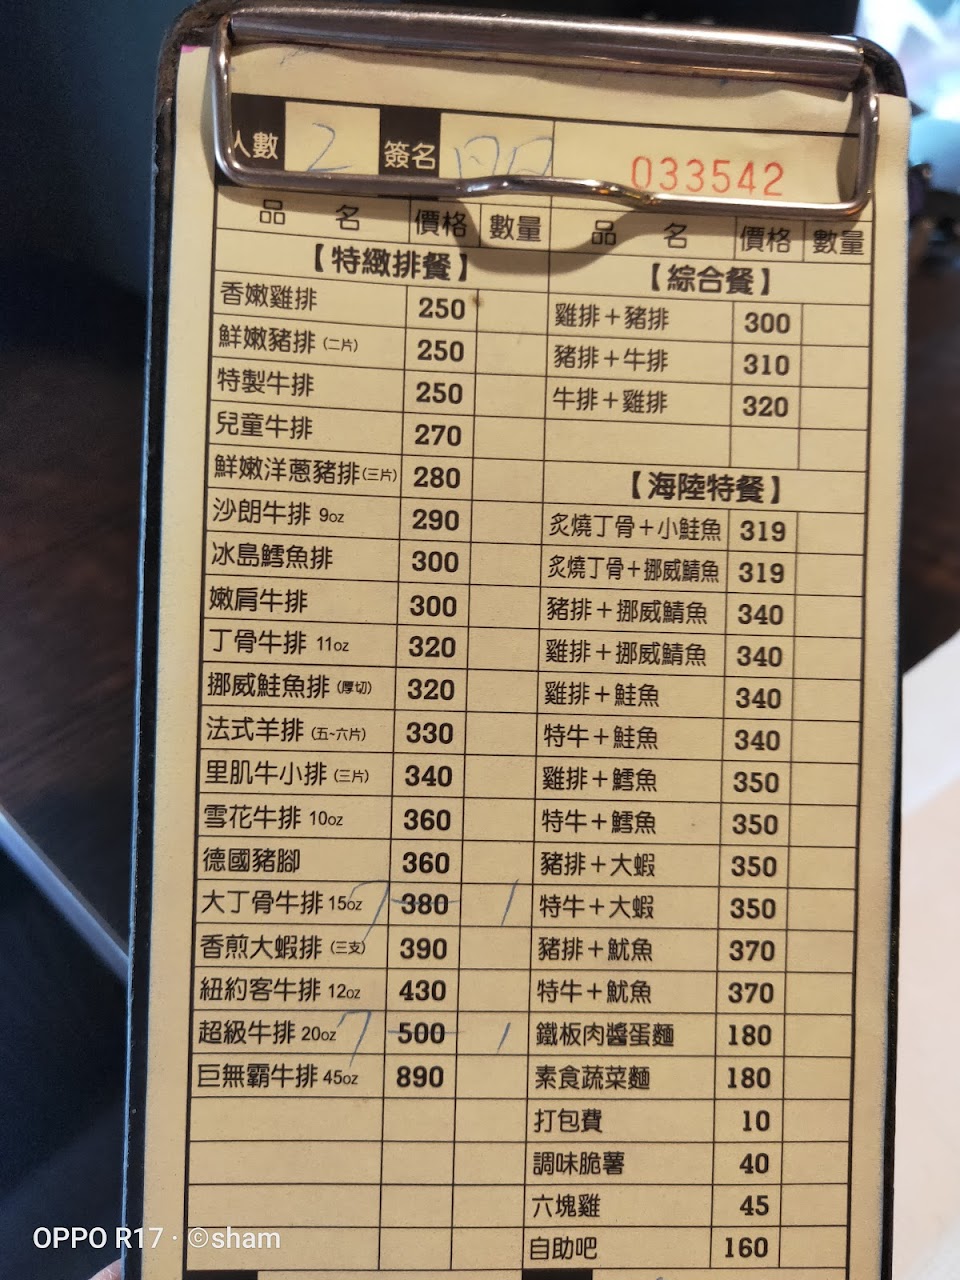 人數 2 簽名 033542
品名 價格 數量 品名 價格 數量
【特緻排餐】
香嫩雞排 250
鮮嫩豬排 (二片) 250
特製牛排 250
兒童牛排 270
鮮嫩洋蔥豬排(三片) 280
沙朗牛排 9oz 290
冰島鱈魚排 300
嫩肩牛排 300
丁骨牛排 11oz 320
挪威鮭魚排 (厚切) 320
法式羊排 (五~六片) 330
里肌牛小排 (三片) 340
雪花牛排 10oz 360
德國豬腳 360
大丁骨牛排 15oz 7 380 1
香煎大蝦排 (三支) 390
紐約客牛排 12oz 430
超級牛排 20oz 7 500 1
巨無霸牛排 45oz 890
【綜合餐】
雞排+豬排 300
豬排+牛排 310
牛排+雞排 320
【海陸特餐】
炙燒丁骨+小鮭魚 319
炙燒丁骨+挪威鯖魚 319
豬排+挪威鯖魚 340
雞排+挪威鯖魚 340
雞排+鮭魚 340
特牛+鮭魚 340
雞排+鱈魚 350
特牛+鱈魚 350
豬排+大蝦 350
特牛+大蝦 350
豬排+魷魚 370
特牛+魷魚 370
鐵板肉醬蛋麵 180
素食蔬菜麵 180
打包費 10
調味脆薯 40
六塊雞 45
自助吧 160
OPPO R17 · ©sham